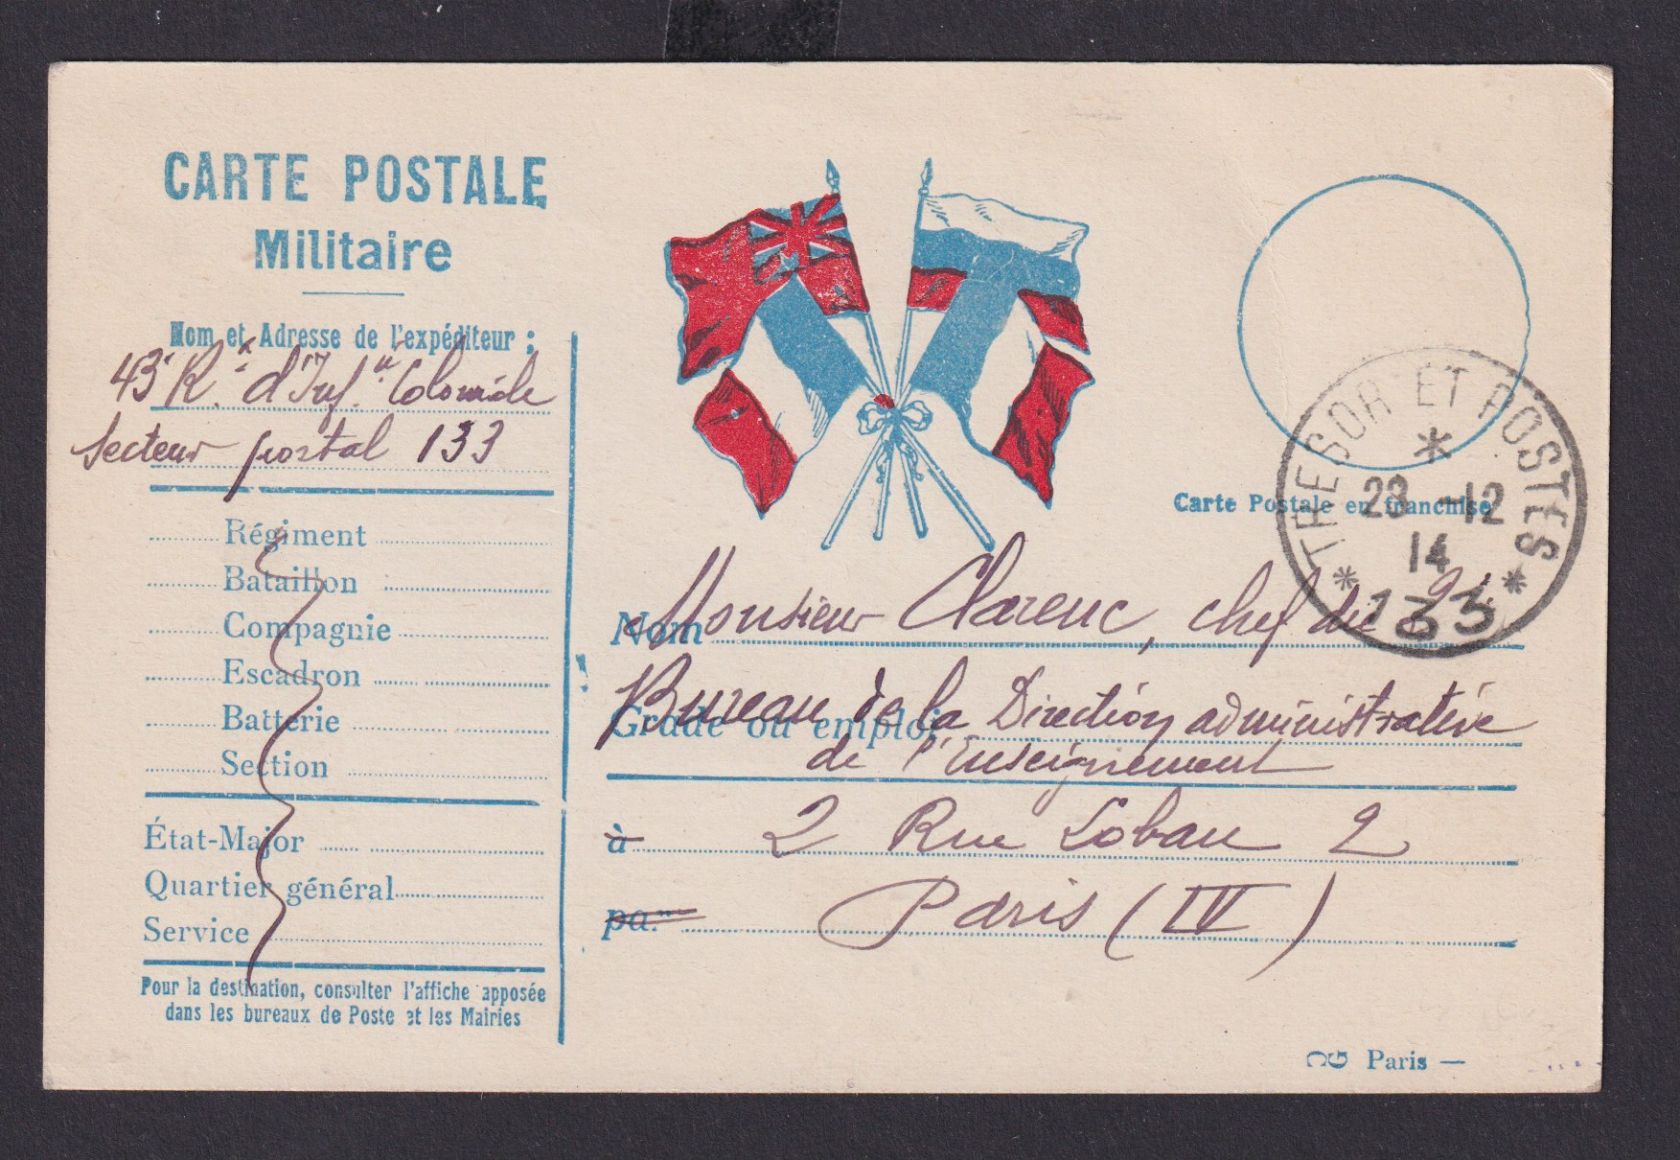 CARTE POSTALE
Militaire
Nom et Adresse de l'expéditeur :
43e Rt d'Infie Coloniale
Secteur postal 133
Régiment
Bataillon
Compagnie
Escadron
Batterie
Section
État-Major
Quartier général
Service
Pour la destination, consulter l'affiche apposée
dans les bureaux de Poste et les Mairies
Carte Postale en franchise
TRESOR ET POSTES
23 -12
14
* 133 *
Nom Monsieur Clarenc, chef du 2e
Grade ou emploi Bureau de la Direction administrative
de l'Enseignement
à 2 Rue Lobau 2
par Paris (IV)
CG Paris —